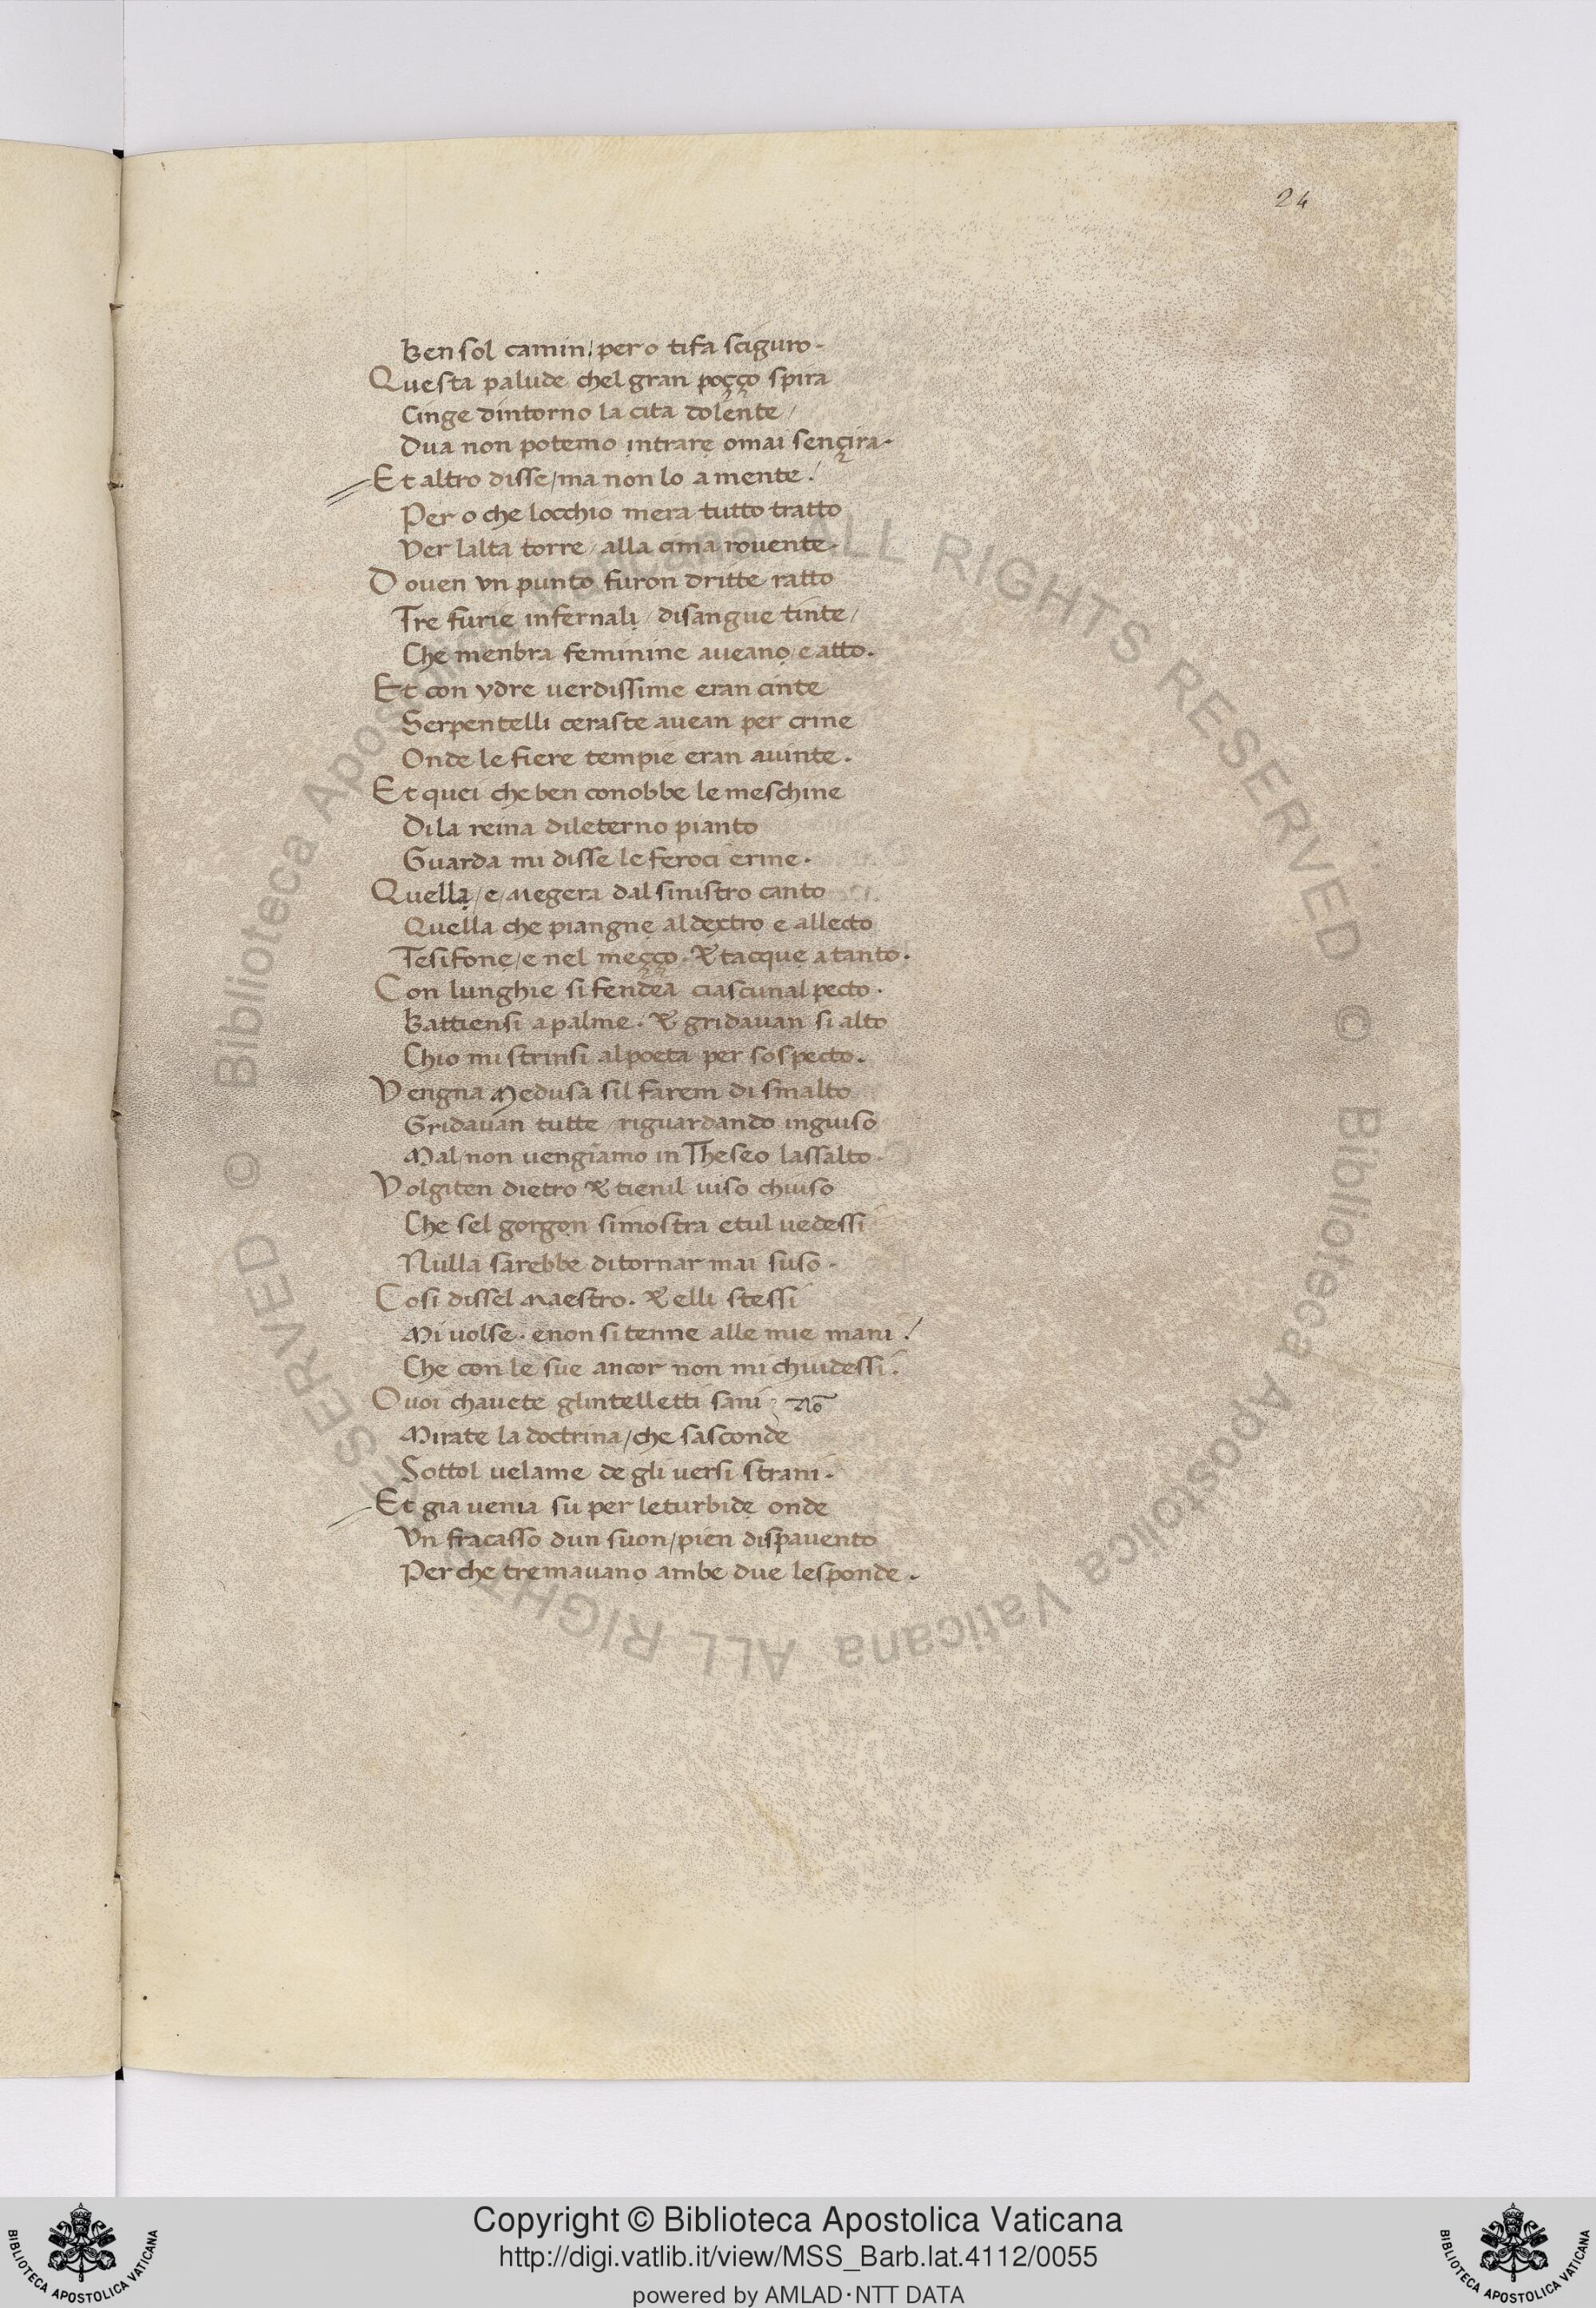 24
Ben sol camin / pero tifa sciguro.
Questa palude chel gran poçço spira
Cinge dintorno la cita dolente /
Dua non potemo intrare omai sençira.
Et altro disse / ma non lo a mente.
Per o che locchio mera tutto tratto
Ver lalta torre / alla cima rouente.
Douen vn punto furon dritte ratto
Tre furie infernali / disangue tinte /
Che menbra feminine aueano / e atto.
Et con ydre uerdissime eran cinte
Serpentelli ceraste auean per crine
Onde le fiere tempie eran auinte.
Et quei che ben conobbe le meschine
Di la reina dileterno pianto
Guarda mi disse le feroci erine.
Quella / e / Megera dal sinistro canto
Quella che piangne al dextro e allecto
Tesifone / e nel meçço. & tacque a tanto.
Con lunghie si fendea ciascunal pecto.
Battiensi a palme. & gridauan si alto
Chio mi strinsi al poeta per sospecto.
Vengna Medusa sil farem di smalto
Gridauan tutte / riguardando ingiuso
Mal / non uengiamo in Theseo lassalto.
Volgiten dietro & tienil uiso chiuso
Che sel gorgon si mostra e tul uedessi
Nulla sarebbe di tornar mai suso.
Cosi dissel Maestro. & elli stessi
Mi uolse. e non si tenne alle mie mani /
Che con le sue ancor non mi chiudessi.
O uoi chauete glintelletti sani. No
Mirate la doctrina / che sasconde
Sottol uelame de gli uersi strani.
Et gia uenia su per le turbide onde
Vn fracasso dun suon / pien dispauento
Per che tremauano ambe due le sponde.
© Biblioteca Apostolica Vaticana ALL RIGHTS RESERVED © Biblioteca Apostolica Vaticana ALL RIGHTS RESERVED
Copyright © Biblioteca Apostolica Vaticana
http://digi.vatlib.it/view/MSS_Barb.lat.4112/0055
powered by AMLAD·NTT DATA
BIBLIOTECA APOSTOLICA VATICANA
BIBLIOTECA APOSTOLICA VATICANA